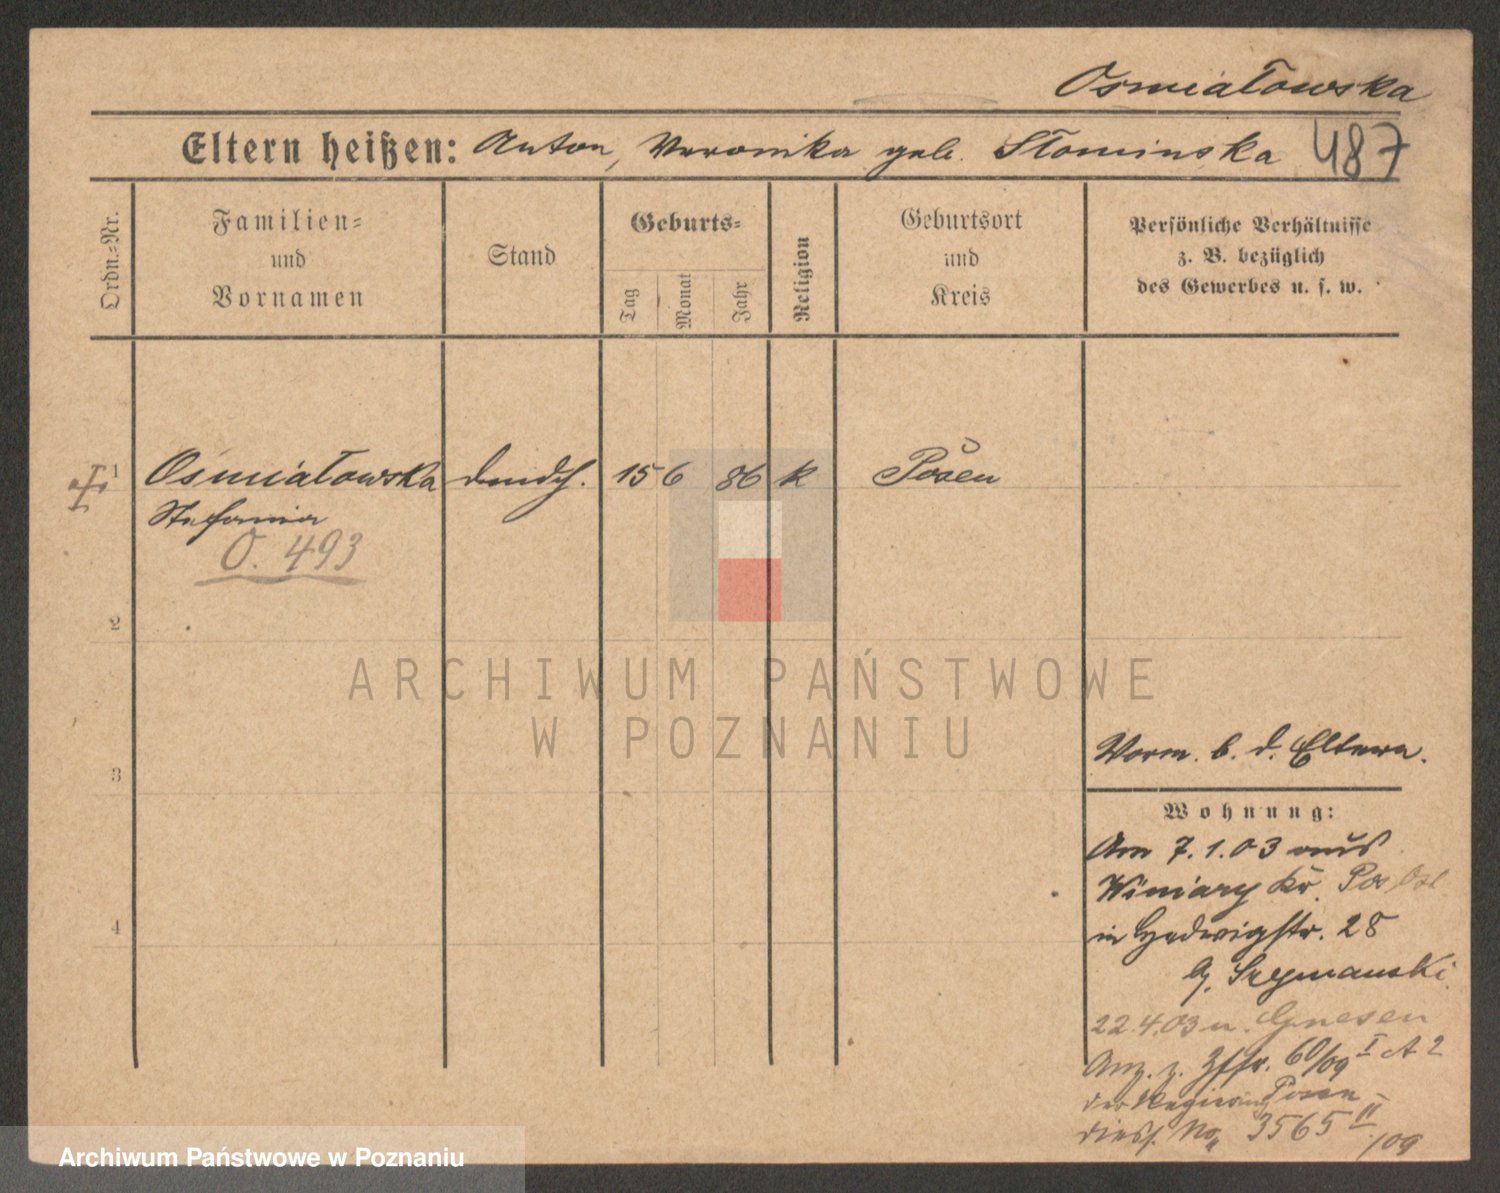 Osmiałowska
Eltern heißen: Anton, Veronika geb. Słominska 487
Ordn.-Nr.
Familien-
und
Vornamen
Stand
Geburts-
Tag
Monat
Jahr
Religion
Geburtsort
und
Kreis
Persönliche Verhältnisse
z. B. bezüglich
des Gewerbes u. s. w.
1 Osmiałowska 15 6 86 k Posen
Stefania
O. 493
2
3
4
Vorm. b. d. Eltern.
Wohnung:
Am 7.1.03 aus
Winiary Kr. Pos Ost
in Hedwigstr. 28
b/. Szymanski
22.4.03 n. Gnesen
Anz. z. 60/09 I A 2
der Regierung Posen
diess. No 3565 II/09
ARCHIWUM PAŃSTWOWE
W POZNANIU
Archiwum Państwowe w Poznaniu